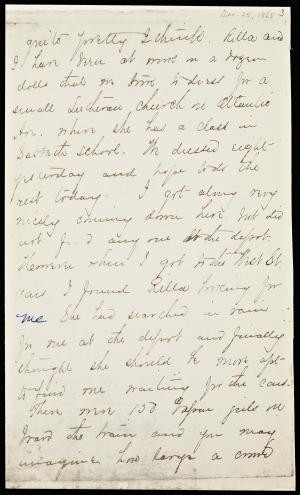 Dec. 25, 1868 3
quite pretty I think. Rella and
I have been at work on a dozen
dolls that we have to dress for a
small Lutheran church on Atlantic
Ave. where she has a class in
Sabbath School. We dressed eight
yesterday and hope to do the
rest today. I got along very
nicely coming down here but did
not find any one at the depot.
However when I got to the West St.
cars I found Rella looking for
me. She had searched in vain
for me at the depot and finally
thought she should be more apt
to find me waiting for the cars.
There were 150 Vassar girls on
board the train and you may
imagine how large a crowd